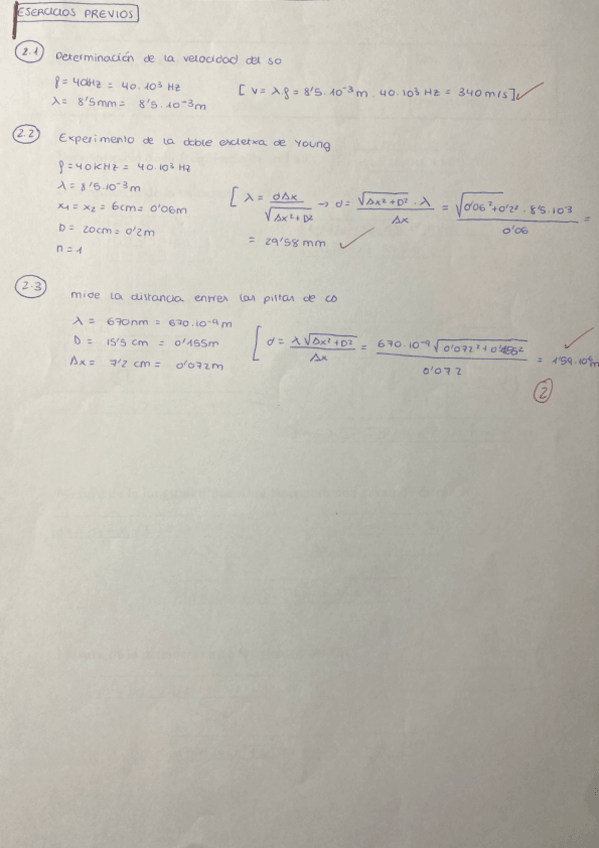 EJERCICIOS PREVIOS
2.1 Determinación de la velocidad del so
f = 40Hz = 40·10³ Hz
λ = 8'5mm = 8'5·10⁻³m
[ v = λ f = 8'5·10⁻³m · 40·10³ Hz = 340 m/s ]
2.2 Experimento de la doble escletxa de Young
f = 40KHz = 40·10³ Hz
λ = 8'5·10⁻³m
x₁ = x₂ = 6cm = 0'06m
D = 20cm = 0'2m
n = 1
[ λ = dΔx / √Δx²+D² → d = √Δx²+D² · λ / Δx = √0'06²+0'2² · 8'5·10⁻³ / 0'06 =
= 29'58 mm
2.3 mide la distancia entres las pistas de CD
λ = 670nm = 670·10⁻⁹m
D = 15'5 cm = 0'155m
Δx = 7'2 cm = 0'072m
[ d = λ√Δx²+D² / Δx = 670·10⁻⁹ √0'072²+0'155² / 0'072
2